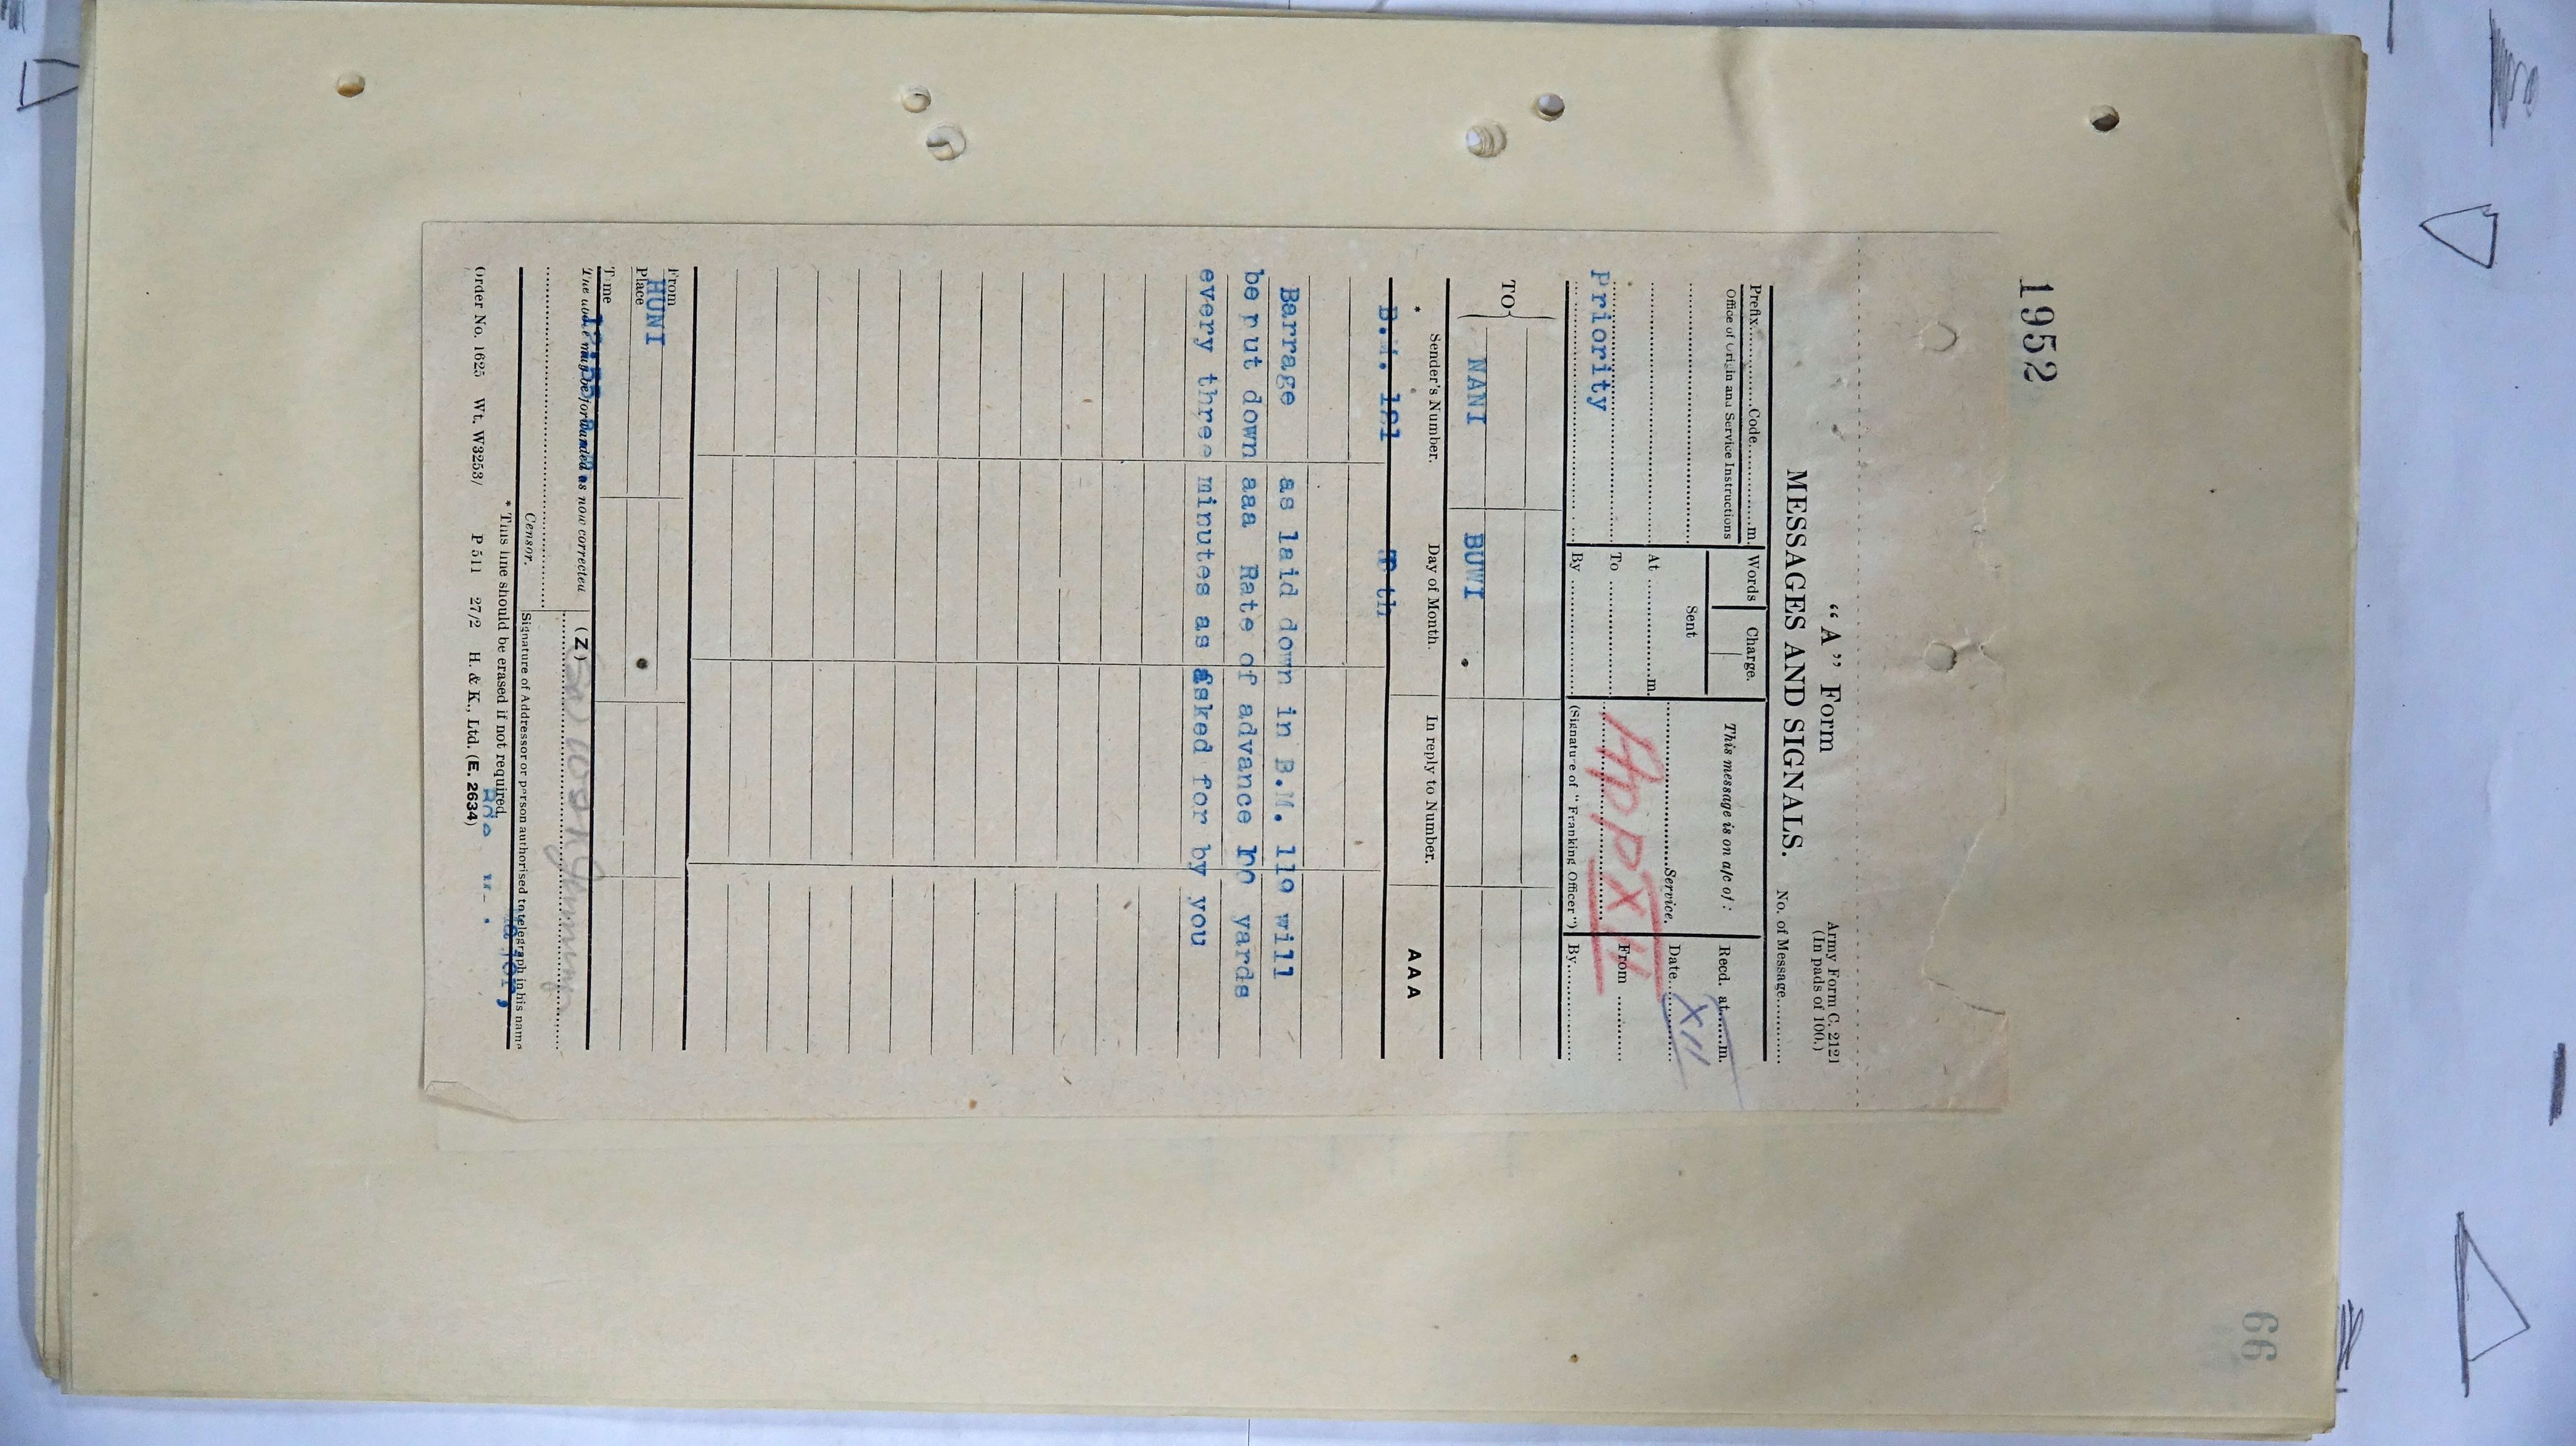 1952
66
"A" Form
Army Form C. 2121
(In pads of 100.)
MESSAGES AND SIGNALS.
No. of Message
Prefix Code m.
Words Charge.
This message is on a/c of :
Recd. at m.
Office of Origin and Service Instructions
Sent
Service.
Date
XII
At m.
To
From
Priority
App XII
By
(Signature of "Franking Officer")
By
TO
NANI
BUWI
* Sender's Number.
Day of Month.
In reply to Number.
AAA
B.M. 121
th
Barrage as laid down in B.M. 119 will
be put down aaa Rate of advance 100 yards
every three minutes as asked for by you
From
HUNI
Place
Time
The above may be forwarded as now corrected
(Z)
Censor.
Signature of Addressor or person authorised to telegraph in his name
Major,
* This line should be erased if not required.
Order No. 1625 Wt. W3253/ P 511 27/2 H. & K., Ltd. (E. 2634)